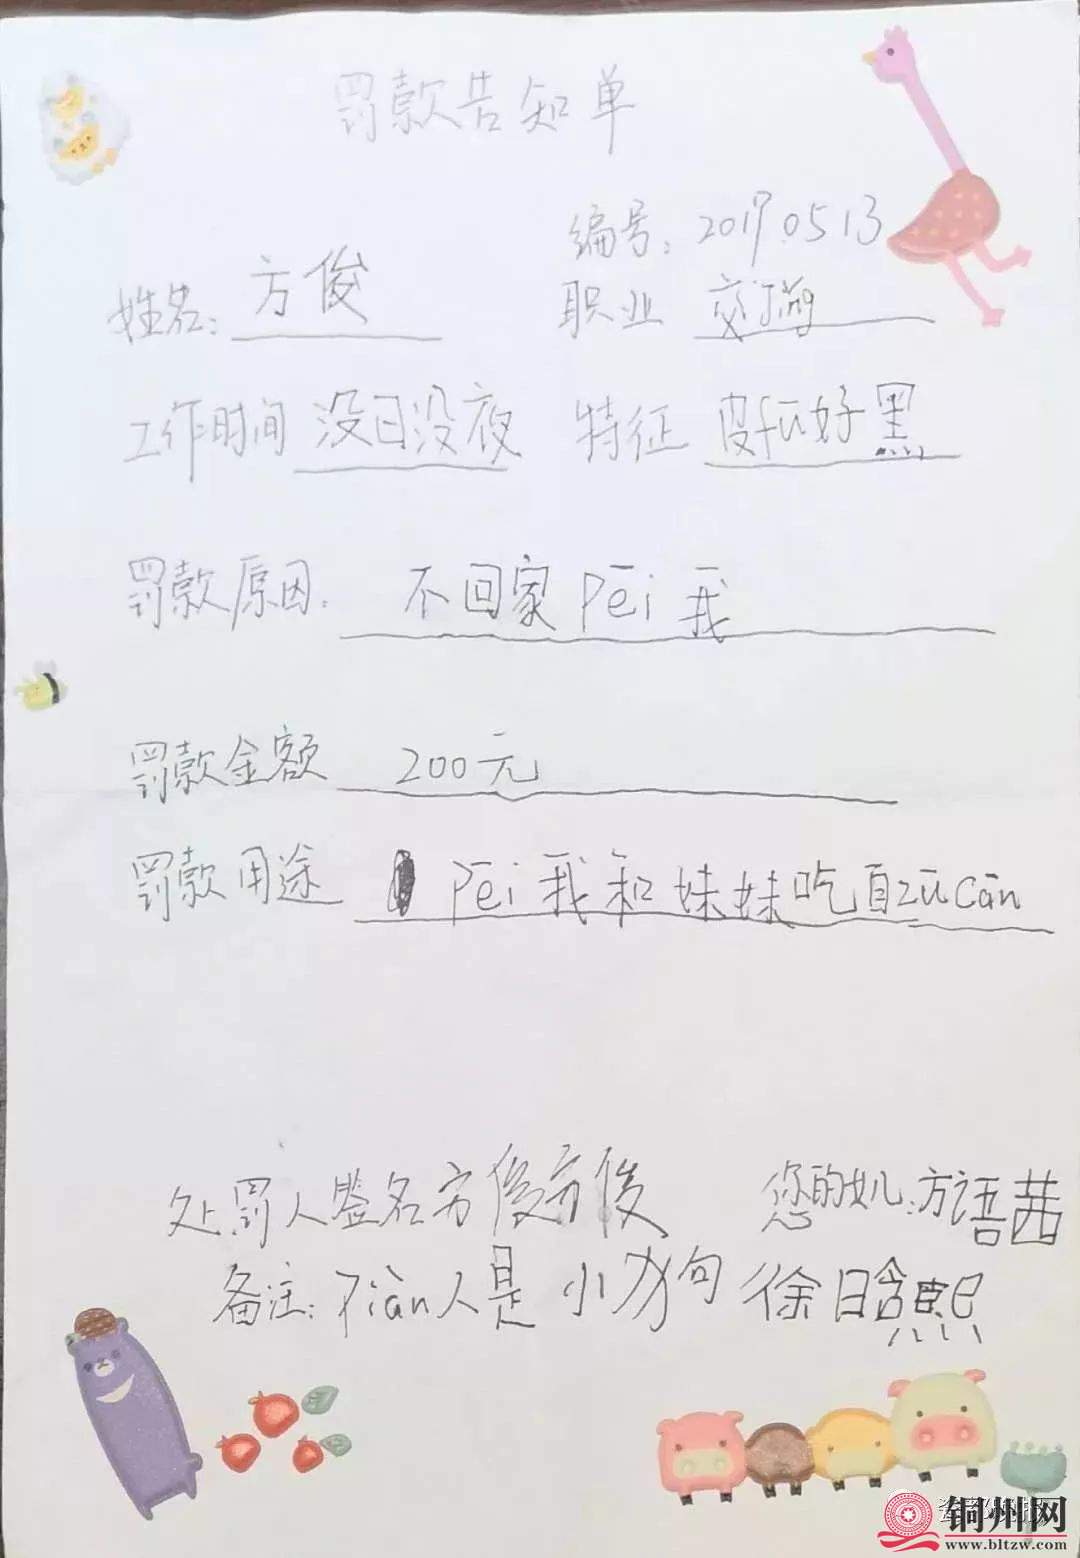 罚款告知单
编号：20170513
姓名：方俊 职业 交jǐng
工作时间 没日没夜 特征 皮fū好黑
罚款原因：不回家Péi我
罚款金额 200元
罚款用途 Péi我和妹妹吃自zùcān
处罚人签名方俊方俊 您的女儿：方语茜
备注：Piàn人是小狗 徐晗熙
铜州网
www.bltzw.com